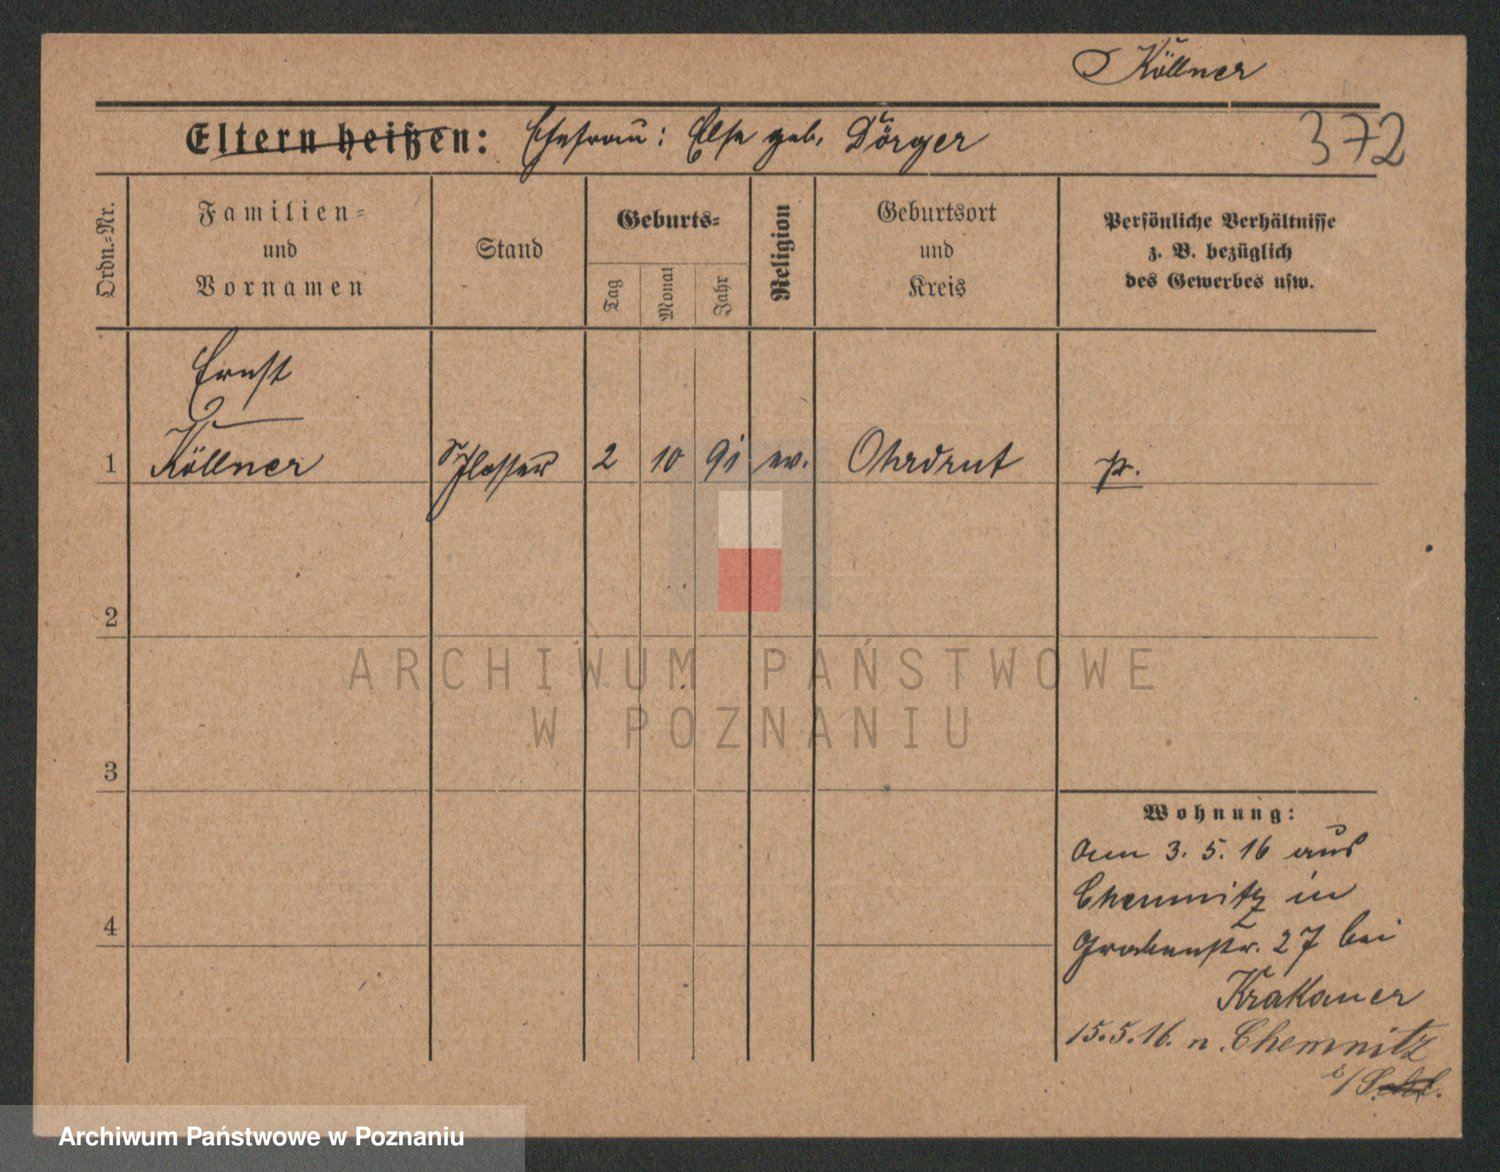 Köllner
Eltern heißen: Ehefrau: Else geb. Dörger
372
Ordn.-Nr.
Familien-
und
Vornamen
Stand
Geburts-
Tag
Monat
Jahr
Religion
Geburtsort
und
Kreis
Persönliche Verhältnisse
z. B. bezüglich
des Gewerbes usw.
Ernst
1 Köllner Schlosser 2 10 91 ev. Ohrdruf pr.
2
ARCHIWUM PAŃSTWOWE
W POZNANIU
3
Wohnung:
Am 3. 5. 16 aus
Chemnitz in
4
Grabenstr. 27 bei
Krakauer
15.5.16. n. Chemnitz
Archiwum Państwowe w Poznaniu